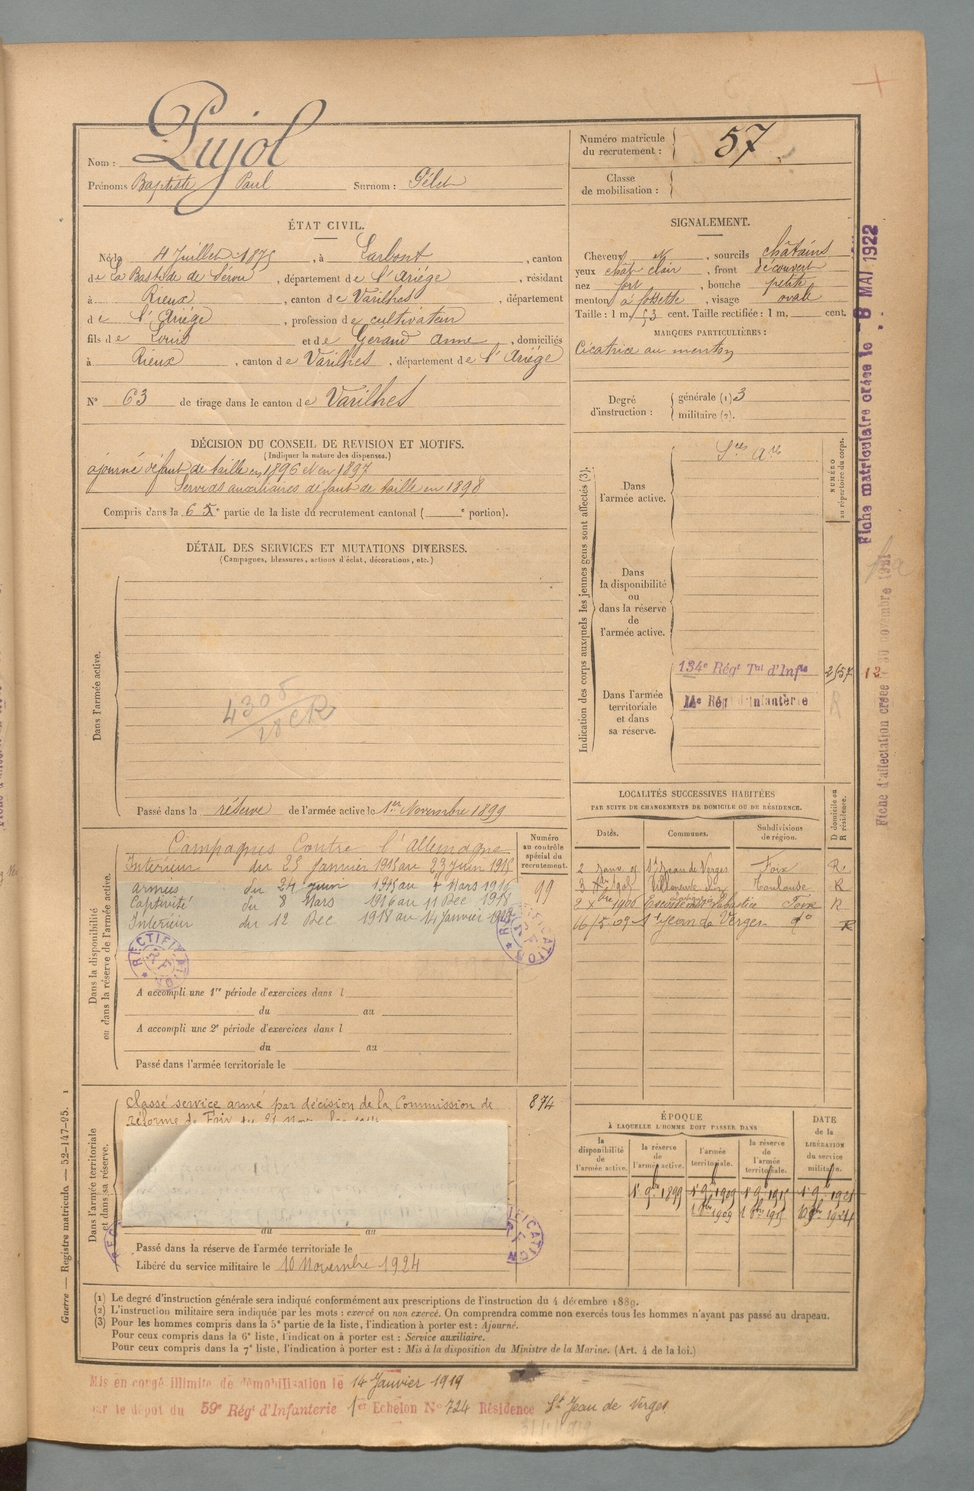 Nom : Pujol
Prénoms Baptiste Paul Surnom :
Numéro matricule
du recrutement : 57
Classe
de mobilisation :
ÉTAT CIVIL.
Né le 4 Juillet 1875, à Larbont, canton
de La Bastide de Sérou, département de l'Ariége, résidant
à Rieux, canton de Varilhes, département
de l'Ariége, profession de cultivateur
fils de Louis et de Gerand Anne, domiciliés
à Rieux, canton de Varilhes, département de l'Ariége
N° 63 de tirage dans le canton de Varilhes
SIGNALEMENT.
Cheveux et, sourcils châtains
yeux chât clair, front découvert
nez fort, bouche petite
menton à fossette, visage ovale
Taille : 1 m. 53 cent. Taille rectifiée : 1 m. cent.
MARQUES PARTICULIÈRES :
Cicatrice au menton
Degré
d'instruction :
générale (1) 3
militaire (2).
DÉCISION DU CONSEIL DE REVISION ET MOTIFS.
(Indiquer la nature des dispenses.)
ajourné défaut de taille en 1896 et en 1897
Services auxiliaires défaut de taille en 1898
Compris dans la 6e partie de la liste du recrutement cantonal ( e portion).
DÉTAIL DES SERVICES ET MUTATIONS DIVERSES.
(Campagnes, blessures, actions d'éclat, décorations, etc.)
Dans l'armée active.
Passé dans la réserve de l'armée active le 1er Novembre 1899
Indication des corps auxquels les jeunes gens sont affectés (3).
NUMÉRO
au répertoire du corps.
Dans
l'armée active.
Dans
la disponibilité
ou
dans la réserve
de
l'armée active.
Dans l'armée
territoriale
et dans
sa réserve.
134e Régt Tal d'Infie
14e Régt d'Infanterie
Fiche matriculaire créée le 8 MAI 1922
Fiche d'affectation créée le 30 novembre 1921
Dans la disponibilité
ou dans la réserve de l'armée active.
Numéro
au contrôle
spécial du
recrutement.
99
Campagnes Contre l'Allemagne
Intérieur du 25 Janvier 1915 au 23 juin 1915
armées du 24 juin 1915 au 7 Mars 1916
Captivité du 8 Mars 1916 au 11 Dec 1918
Intérieur du 12 Dec 1918 au 14 janvier 1919
RECTIFICATION
RECTIFICATION
A accompli une 1re période d'exercices dans l
du au
A accompli une 2e période d'exercices dans l
du au
Passé dans l'armée territoriale le
LOCALITÉS SUCCESSIVES HABITÉES
PAR SUITE DE CHANGEMENTS DE DOMICILE OU DE RÉSIDENCE.
D domicile ou
R résidence.
Dates. Communes. Subdivisions
de région.
St Jean de Verges Foix R
Toulouse R
Foix R
16/5 09 St Jean de Verges do R
Dans l'armée territoriale
et dans sa réserve.
classé service armé par décision de la Commission de
réforme de Foix du
874
du au
Passé dans la réserve de l'armée territoriale le
Libéré du service militaire le 10 Novembre 1924
ÉPOQUE
À LAQUELLE L'HOMME DOIT PASSER DANS
la
disponibilité
de
l'armée active.
la réserve
de
l'armée active.
l'armée
territoriale.
la réserve
de
l'armée
territoriale.
DATE
de la
LIBÉRATION
du service
militaire.
Guerre — Registre matricule — 52-147-95.
(1) Le degré d'instruction générale sera indiqué conformément aux prescriptions de l'instruction du 4 décembre 1889.
(2) L'instruction militaire sera indiquée par les mots : exercé ou non exercé. On comprendra comme non exercés tous les hommes n'ayant pas passé au drapeau.
(3) Pour les hommes compris dans la 5e partie de la liste, l'indication à porter est : Ajourné.
Pour ceux compris dans la 6e liste, l'indication à porter est : Service auxiliaire.
Pour ceux compris dans la 7e liste, l'indication à porter est : Mis à la disposition du Ministre de la Marine. (Art. 4 de la loi.)
Mis en congé illimité de démobilisation le 14 Janvier 1919
par le dépôt du 59e Régt d'Infanterie 1er Echelon N° 724 Résidence St Jean de Verges